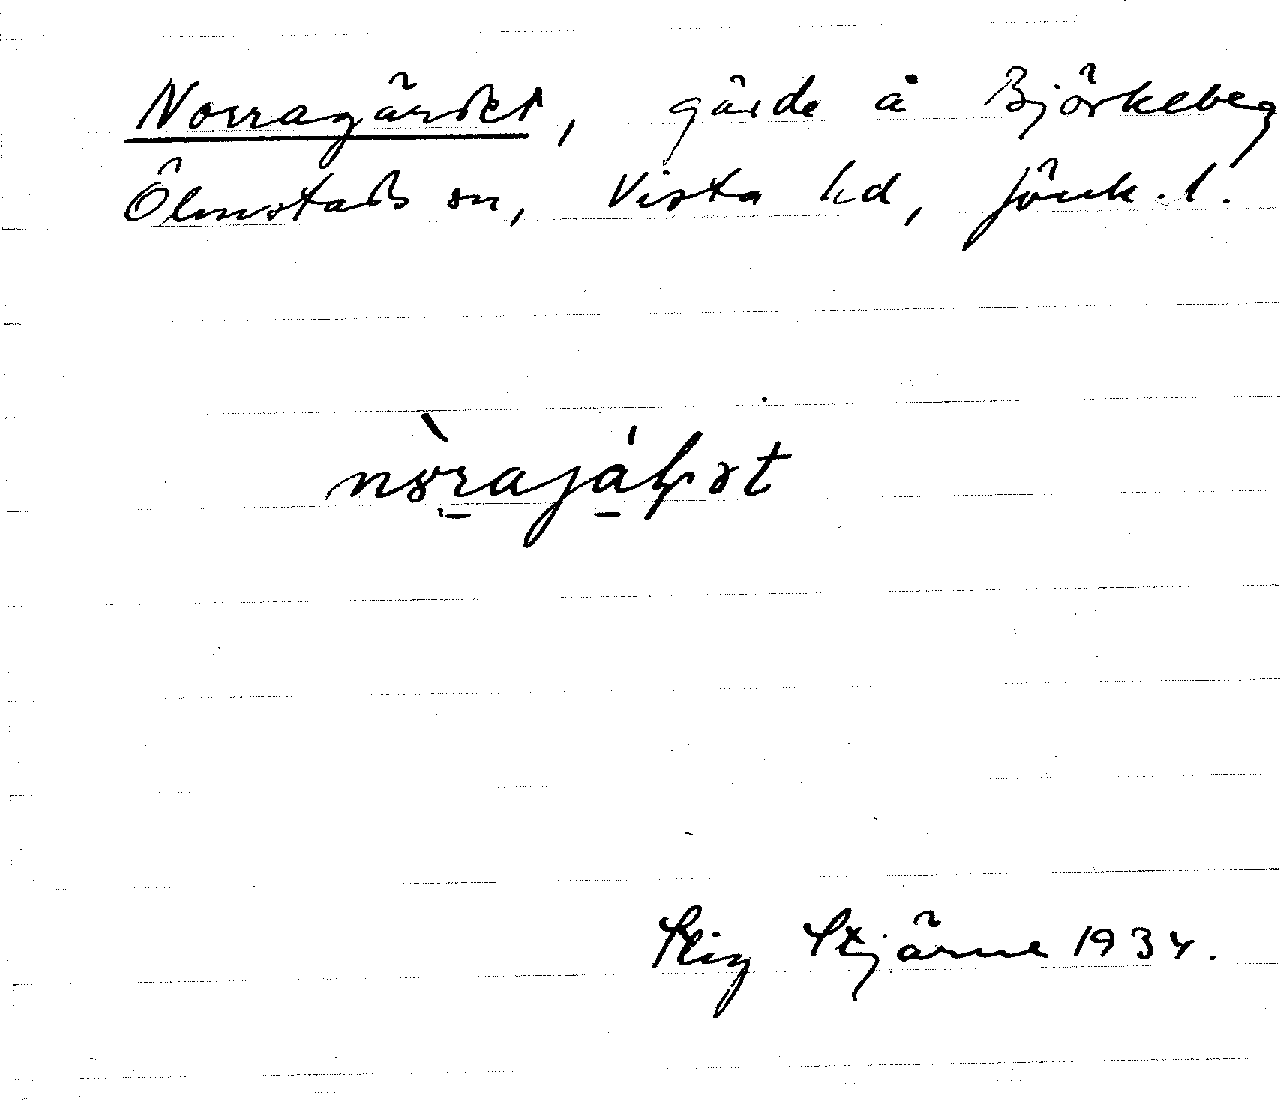 Norragärdet, gärde å Björkeberg
Ölmstads sn, Vista hd, Jönk. l.
Stig Stjärne 1934.